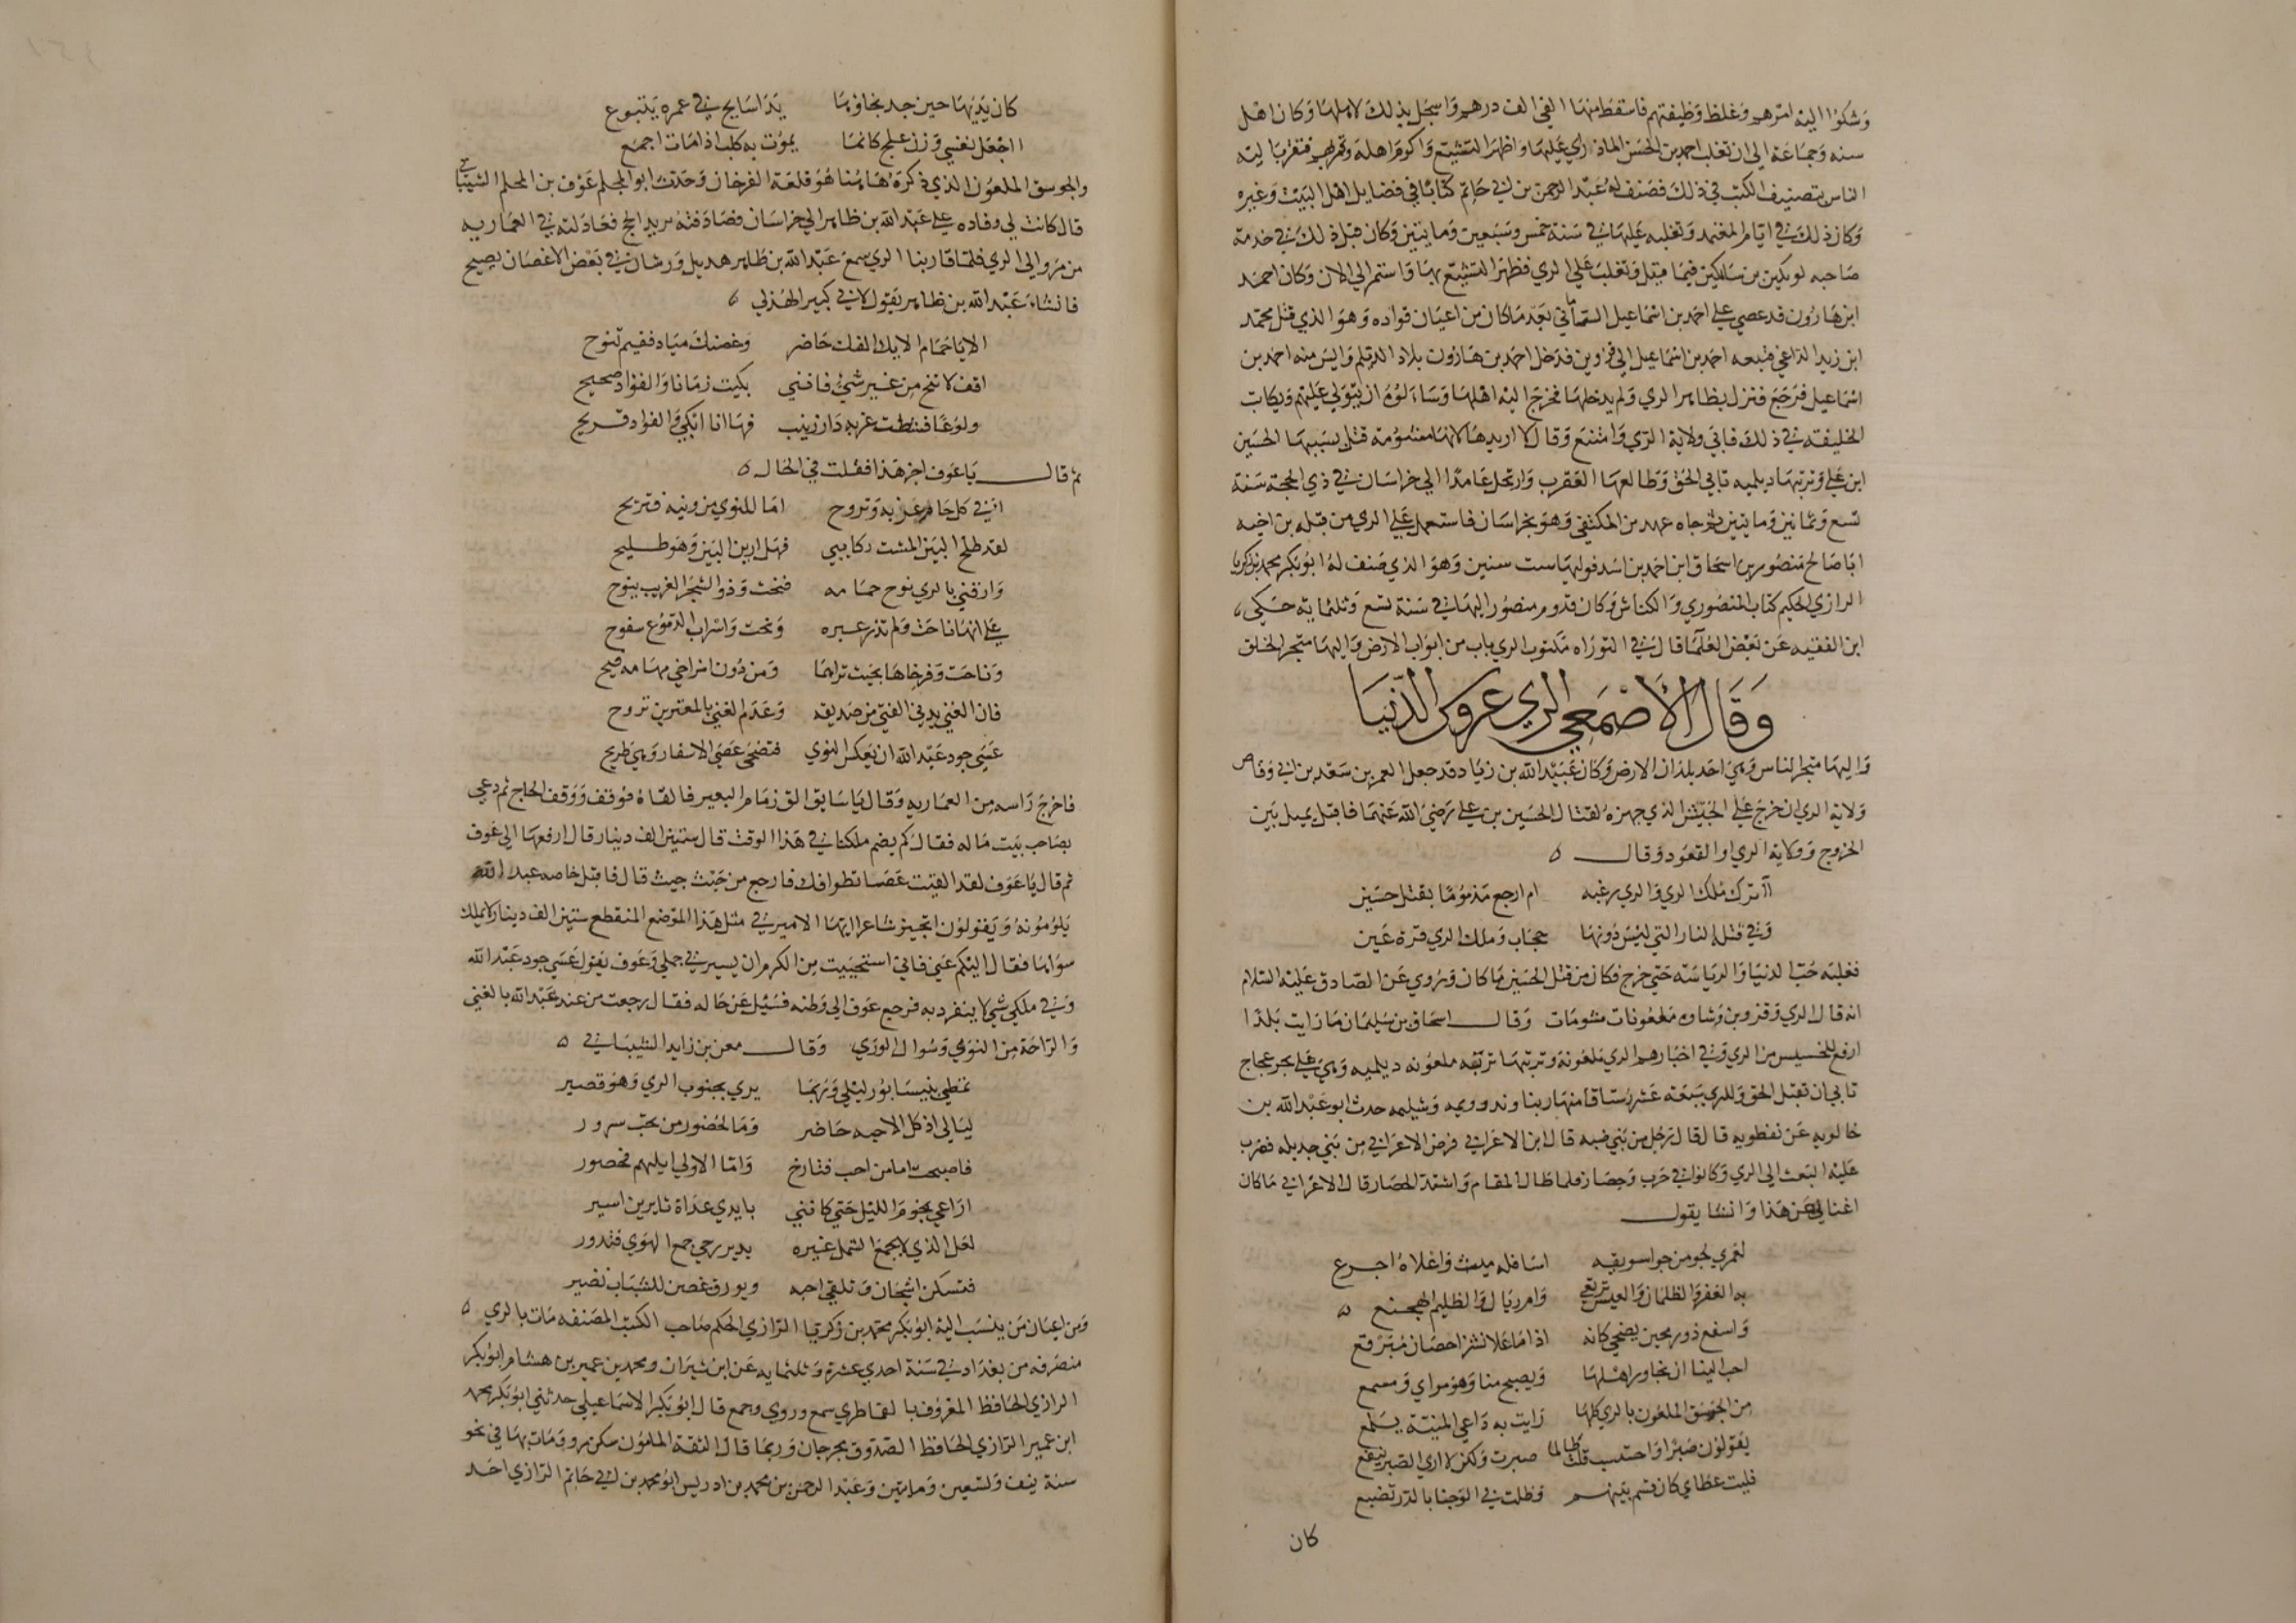 وشكوا اليه امرهم وغلظ وظيفتهم فاسقط منها الفي الف درهم واسجل بذلك لاهلها وكان اهل
سنه وجماعة الى ان تغلب احمد بن الحسن الماذراي عليها واظهر التشيع واكرم اهله وقربهم فتقرب اليه
الناس بتصنيف الكتب في ذلك فصنف له عبد الرحمن بن ابي حاتم كتابا في فضايل اهل البيت وغيره
وكان ذلك في ايام المعتمد وتغلبه عليها في سنة خمس وسبعين وماتين وكان قبل ذلك في خدمة
صاحبه وتغلب على الري فظهر التشيع بها واستمر الى الان وكان احمد
ابن هارون قد عصي على احمد بن اسماعيل الساماني بعد ما كان من اعيان قواده وهو الذي قتل محمد
ابن زيد الداعي فتبعه احمد بن اسماعيل الى قزوين فدخل احمد بن هارون بلاد الديلم وايس منه احمد بن
اسماعيل فرجع فنزل بظاهر الري ولم يدخلها فخرج اليه اهلها وسالوه ان يتولي عليهم ويكاتب
الخليفة في ذلك فابي ولاية الري وامتنع وقال لا اريدها لانها مشومة قتل بسببها الحسين
ابن علي وتربتها ديلميه تابي الحق وطالعها العقرب وارتحل عامدا الي خراسان في ذي الحجة سنة
تسع وثمانين وماتين ثم جاه عهد من المكتفي وهو بخراسان فاستعمل علي الري من قبله بن اخيه
ابا صالح منصور بن اسحاق ابن احمد بن اسد فوليها ست سنين وهو الذي صنف له ابو بكر محمد بن زكريا
الرازي الحكيم كتاب المنصوري والكناش وكان قدوم منصور اليها في سنة تسع وثلثماية حكي
ابن الفقيه عن بعض العلما قال في التوراه مكتوب الري باب من ابواب الارض واليها متجر الخلق
وقال الاصمعي الري عروس الدنيا
واليها متجر الناس وهي احد بلدان الارض وكان عبيد الله بن زياد قد جعل لعمر بن سعد بن ابي وقاص
ولاية الري ان خرج علي الجيش الذي جهزه لقتال الحسين بن علي رضي الله عنهما فاقبل يميل بين
الخروج وولاية الري او القعود وقال
اأترك ملك الري والري رغبه ام ارجع مذموما بقتل حسين
وفي قتله النار التي ليس دونها حجاب وملك الري قرة عين
فغلبه حب الدنيا والرياسة حتي خرج فكان من قتل الحسين ما كان وروي عن الصادق عليه السلام
انه قال الري وقزوين وساوه ملعونات مشومات وقال اسحاق بن سليمان ما رايت بلدا
ارفع للخسيس من الري وفي اخبارهم الري ملعونة وتربتها تربة ملعونه ديلميه وهي علي بحر عجاج
تابي ان تقبل الحق وللري سبعة عشر رستاقا منها دنباوند وويمه وشلمبه حدث ابو عبد الله بن
خالويه عن نفطويه قال قال رجل من بني ضبه قال ابن الاعرابي فرض الاعرابي من بني جديله فضرب
عليه البعث الى الري وكانوا في حرب وحصار فلما طال المقام واشتد الحصار قال الاعرابي ما كان
اغناني عن هذا وانشا يقول
لعمري لجو من جواء سويقه اسافله ميث واعلاه اجرع
به العفر والظلمان والعيس ترتعي وام رئال والظليم الهجنع
واسفع ذو رمحين يضحي كانه اذا ما علا نشزا حصان مبرقع
احب الينا ان نجاور اهلها ويصبح منا وهو مراي ومسمع
من الجوسق الملعون بالري كلما رايت به داعي المنية يلمع
يقولون صبرا واحتسب قلت طالما صبرت ولكن لا اري الصبر ينفع
فليت عطاي كان قسم بينهم وظلت في الوجنا بالدر تضبع
كان
كان يديها حين جد نجاؤها يدا سابح في غمره يتبوع
ااجعل نفسي وزن علج كانما يموت به كلب اذا مات اجمع
والجوسق الملعون الذي ذكره هاهنا هو قلعة الفرخان وحدث ابو المحلم عوف بن المحلم الشيباني
قال كانت لي وفاده على عبد الله بن طاهر الى خراسان فصادفته يريد الحج فعادلته في العماريه
من مرو الى الري فلما قاربنا الري سمع عبد الله بن طاهر هديل ورشان في بعض الاغصان يصيح
فانشاء عبد الله بن طاهر يقول لابي كبير الهذلي
الا يا حمام الايك الفك حاضر وغصنك مياد ففيم تنوح
افق لا تنح من غير شيء فانني بكيت زمانا والفؤاد صحيح
ولوعا فشطت غربة دار زينب فها انا ابكي والفؤاد قريح
ثم قال يا عوف اجز هذا فقلت في الحال
افي كل عام غربة وتروح اما للنوي من ونية فتريح
لقد طلح البين المشت ركايبي فهل ارين البين وهو طليح
وارقني بالري نوح حمامه فنحت وذو الشجو الغريب ينوح
على انها ناحت ولم تذر عبره ونحت واسراب الدموع سفوح
وناحت وفرخاها بحيث تراهما ومن دون افراخي مهامه فيح
فان الغني يدني الفتي من صديقه وعدم الغني بالمعترين تروح
عسي جود عبد الله ان يعكس النوي فتضحي عصي الاسفار وهي طريح
فاخرج راسه من العماريه وقال يا سايق الق زمام البعير فالقاه فوقف ووقف الحاج ثم دعي
بصاحب بيت ماله فقال كم يضم ملكنا في هذا الوقت قال ستين الف دينار قال ارفعها الى عوف
ثم قال يا عوف لقد القيت عصا تطوافك فارجع من حيث جيت قال فاقبل خاصة عبد الله
يلومونه ويقولون اتجيز شاعرا ايها الامير في مثل هذا الموضع المنقطع ستين الف دينار ولا تملك
سواها فقال اليكم عني فاني استحييت من الكرم ان يسير بي جملي وعوف يقول عسي جود عبد الله
وفي ملكي شي لا ينفرد به فرجع عوف الى وطنه فسئل عن حاله فقال رجعت من عند عبد الله بالغني
والراحة من النوي وسوال الوري وقال معن بن زايدا الشيباني
تمطي بنيسابور ليلي وربما يري بجنوب الري وهو قصير
ليالي اذ كل الاحبه حاضر وما لحضور من تحب سرور
فاصبحت اما من احب فنازح واما الاولي ايليهم فحضور
اراعي نجوم الليل حتي كانني بايدي عداة ثايرين اسير
لعل الذي لا يجمع الشمل غيره يدير رحي جمع الهوي فتدور
فتسكن اشجان وتلقي احبه ويورق غصن للشباب نضير
ومن اعيان من ينسب اليه ابو بكر محمد بن زكريا الرازي الحكيم صاحب الكتب المصنفه مات بالري
منصرفه من بغداد في سنة احدي عشرة وثلثمايه عن ابن شيران ومحمد بن عمير بن هشام ابو بكر
الرازي الحافظ المعروف بالقماطري سمع وروي وجمع قال ابو بكر الاسماعيلي حدثني ابو بكر محمد
ابن عمير الرازي الحافظ الصدوق بجرجان وربما قال الثقة المامون سكن مرو ومات بها في نحو
سنة نيف وتسعين وماتين وعبد الرحمن بن محمد بن ادريس ابو محمد بن ابي حاتم الرازي احد